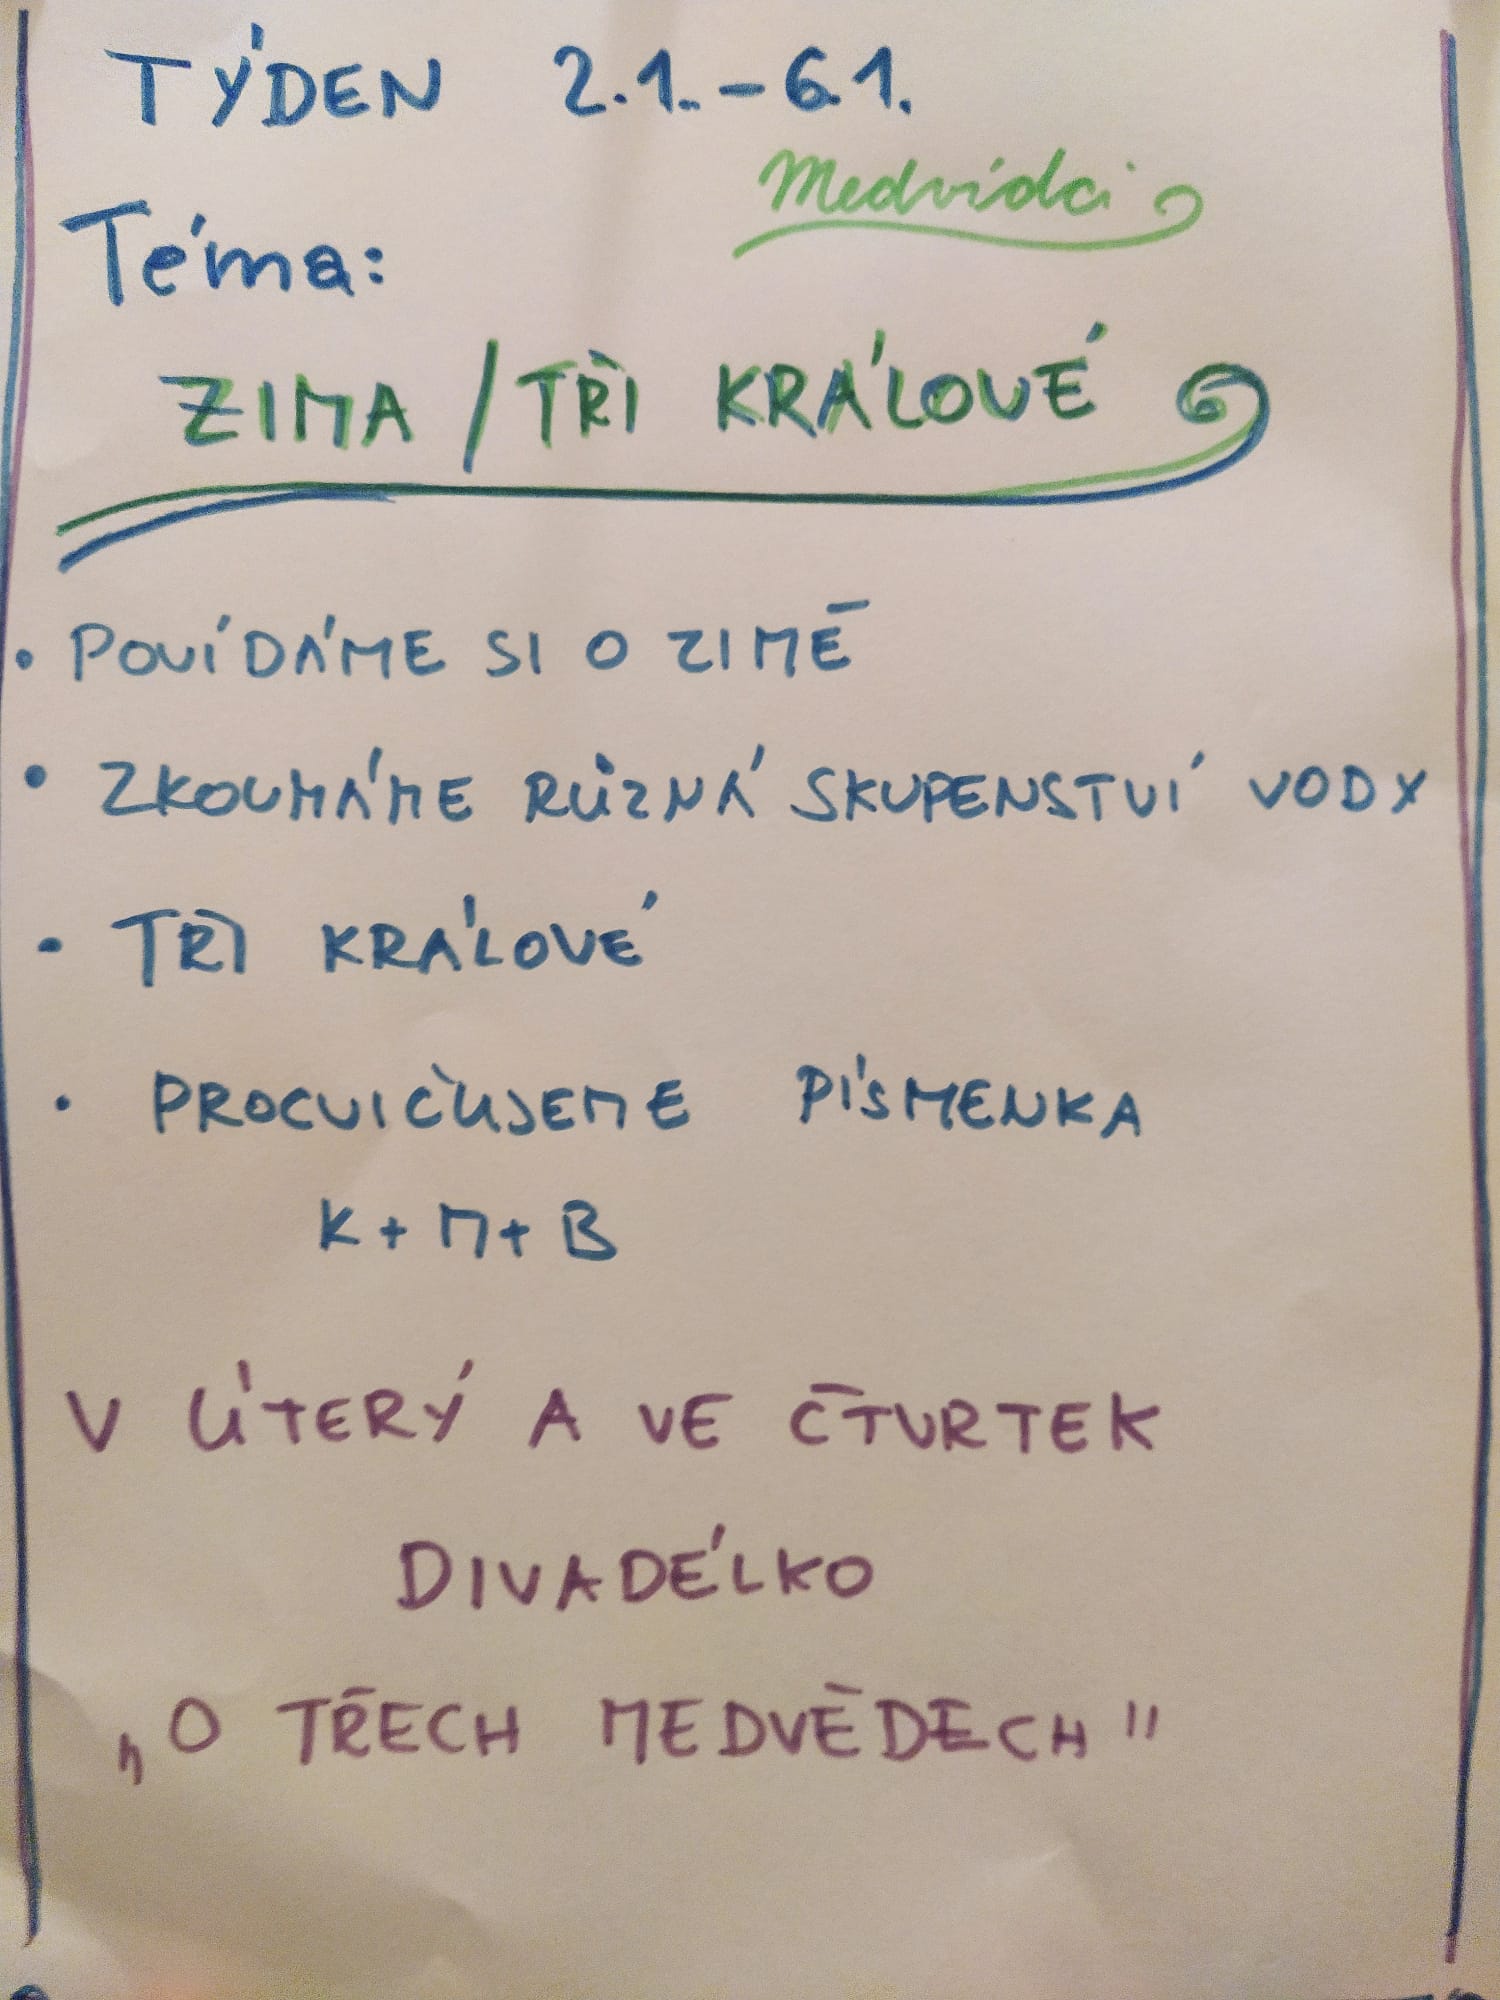 TÝDEN 2.1. - 6.1.
Medvídci
Téma:
ZIMA / TŘI KRÁLOVÉ
• POVÍDÁME SI O ZIMĚ
• ZKOUMÁME RŮZNÁ SKUPENSTVÍ VODY
• TŘI KRÁLOVÉ
• PROCVIČUJEME PÍSMENKA
K + M + B
V ÚTERÝ A VE ČTVRTEK
DIVADÉLKO
„O TŘECH MEDVĚDECH"